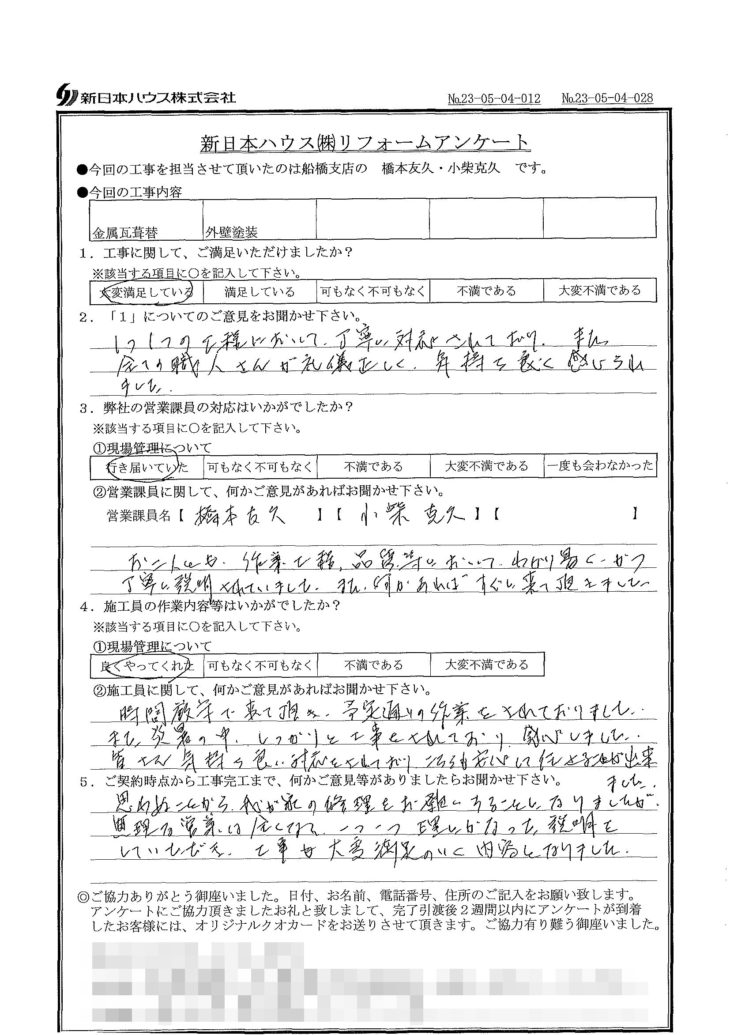 新日本ハウス株式会社 №23-05-04-012 №23-05-04-028
新日本ハウス㈱リフォームアンケート
●今回の工事を担当させて頂いたのは船橋支店の 橋本友久・小柴克久 です。
●今回の工事内容
金属瓦葺替 外壁塗装
1．工事に関して、ご満足いただけましたか？
※該当する項目に○を記入して下さい。
大変満足している 満足している 可もなく不可もなく 不満である 大変不満である
2．「1」についてのご意見をお聞かせ下さい。
1つ1つの工程において、丁寧に対応されており、また
全ての職人さんが礼儀正しく、気持ち良く感じられ
ました。
3．弊社の営業課員の対応はいかがでしたか？
※該当する項目に○を記入して下さい。
①現場管理について
行き届いていた 可もなく不可もなく 不満である 大変不満である 一度も会わなかった
②営業課員に関して、何かご意見があればお聞かせ下さい。
営業課員名【 橋本友久 】【 小柴克久 】【 】
お二人とも、作業工程、品質等において、わかり易く、かつ
丁寧に説明されていました。また、何かあればすぐに来て頂きました。
4．施工員の作業内容等はいかがでしたか？
※該当する項目に○を記入して下さい。
①現場管理について
良くやってくれた 可もなく不可もなく 不満である 大変不満である
②施工員に関して、何かご意見があればお聞かせ下さい。
時間厳守で来て頂き、予定通りの作業をされておりました。
また炎暑の中、しっかりと工事をされており、感心しました。
皆さん気持の良い対応をされており、こちらも安心して任せる事が出来
ました。
5．ご契約時点から工事完工まで、何かご意見等がありましたらお聞かせ下さい。
思わぬことから、我が家の修理をお願いすることになりましたが、
無理な営業は全くなく、一つ一つ理にかなった説明を
していただき、工事も大変満足のいく内容となりました。
◎ご協力ありがとう御座いました。日付、お名前、電話番号、住所のご記入をお願い致します。
アンケートにご協力頂きましたお礼と致しまして、完了引渡後２週間以内にアンケートが到着
したお客様には、オリジナルクオカードをお送りさせて頂きます。ご協力有り難う御座いました。